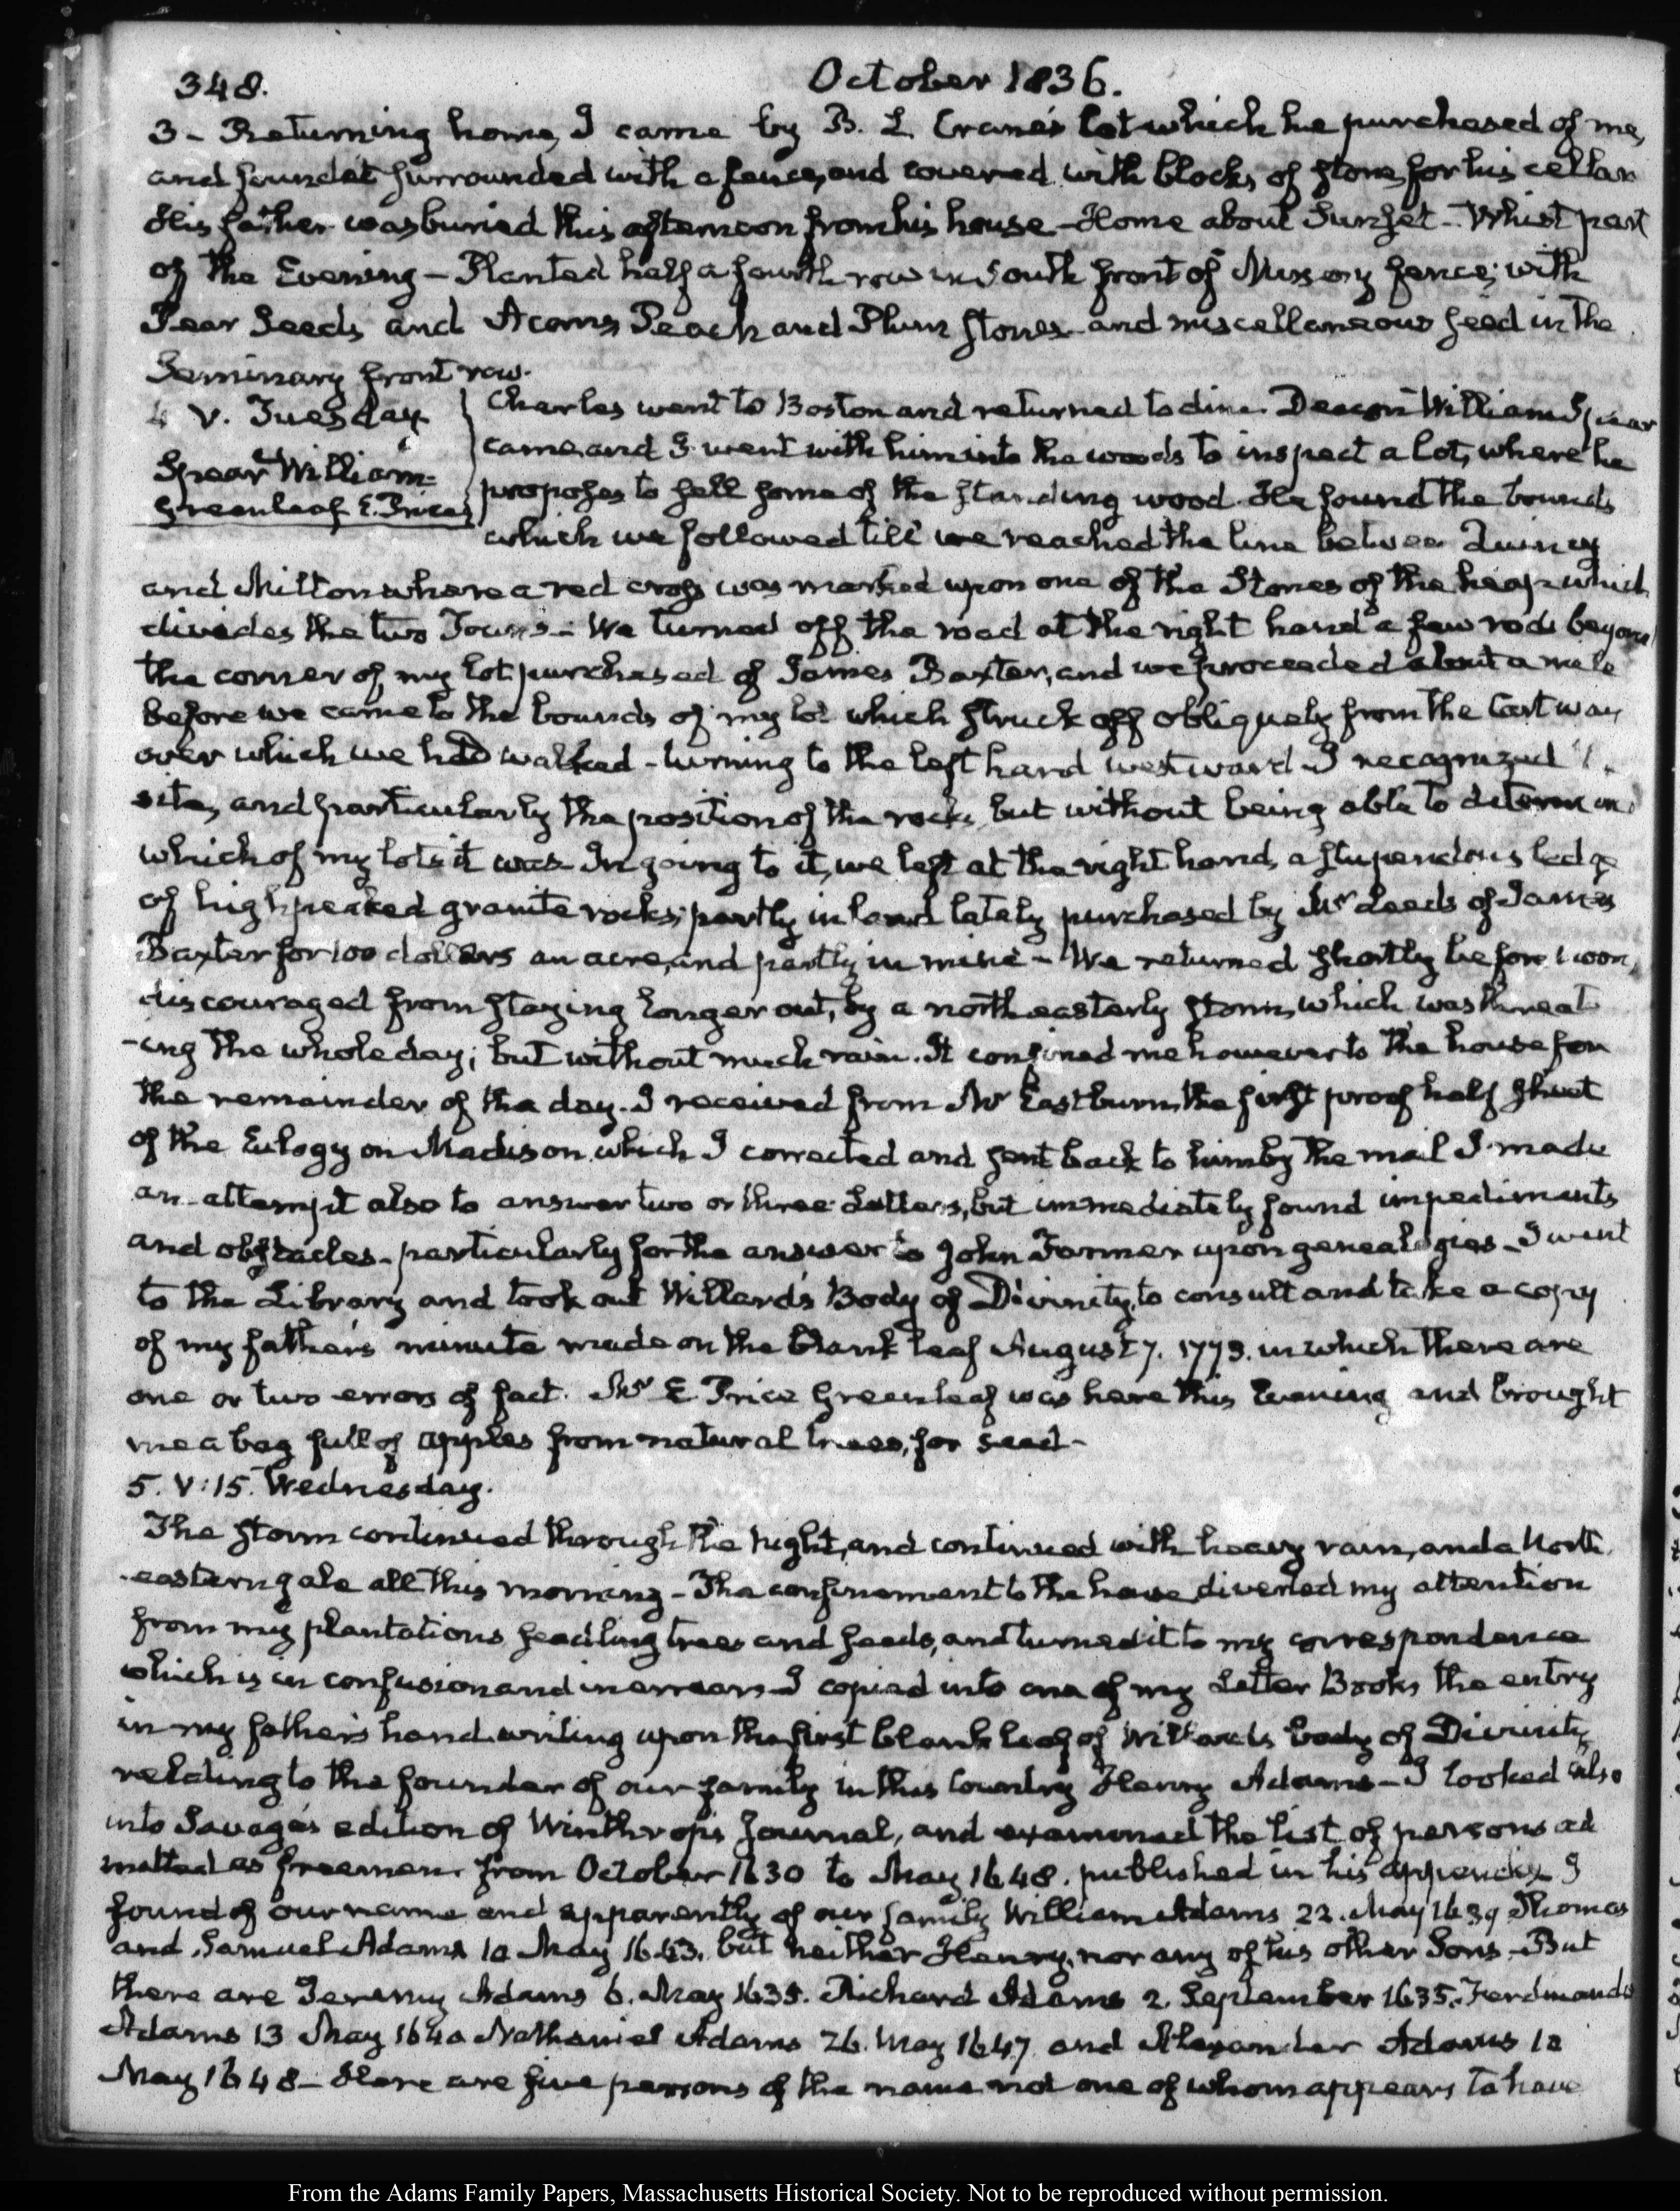 348.
October 1836.
3 - Returning home, I came by B. L. Crane's lot which he purchased of me,
and found it surrounded with a fence, and covered with blocks of stone, for his cellar
His father was buried this afternoon from his house - Home about Sunset - Whist part
of the Evening - Planted half a fourth row in South front of Nursery fence; with
Pear Seeds and Acorns Peach and Plum stones and miscellaneous seed in the
Seminary front row.
4 V. Tuesday
Spear William
Greenleaf E. Price
Charles went to Boston and returned to dine. Deacon William Spear
came, and I went with him into the woods to inspect a lot, where he
proposes to sell some of the standing wood. He found the bounds
which we followed till we reached the line between Quincy
and Milton where a red cross was marked upon one of the Stones of the heap which
divides the two Towns - We turned off the road at the right hand a few rods beyond
the corner of my lot purchased of James Baxter, and we proceeded about a mile
before we came to the bounds of my lot which struck off obliquely from the Cart way
over which we had walked - turning to the left hand westward I recognized
site, and particularly the position of the rocks, but without being able to determine
which of my lots it was In going to it, we left at the right hand, a stupendous ledge
of high peaked granite rocks; partly in land lately purchased by Mr Leeds of James
Baxter for 100 dollars an acre, and partly in mine - We returned shortly before noon,
discouraged from staying longer out, by a north easterly storm, which was threat
-ing the whole day; but without much rain. It confined me however to the house for
the remainder of the day. I received from Mr Eastburn the first proof half sheet
of the Eulogy on Madison which I corrected and sent back to him by the mail I made
an attempt also to answer two or three Letters, but immediately found impediments
and obstacles - particularly for the answer to John Farmer upon genealogies - I went
to the Library and took out Willard's Body of Divinity, to consult and take a copy
of my father's minute made on the blank leaf August 7. 1773. in which there are
one or two errors of fact. Mr E Price Greenleaf was here this Evening and brought
me a bag full of apples from natural trees, for seed -
5. V:15. Wednesday.
The storm continued through the night, and continued with heavy rain, and a North
eastern gale all this morning - The confinement to the house diverted my attention
from my plantations seedling trees and seeds, and turned it to my correspondence
which is in confusion and in arrears - I copied into one of my Letter Books the entry
in my father's hand writing upon the first blank leaf of Willard's body of Divinity,
relating to the founder of our family in this Country Henry Adams - I looked also
into Savage's edition of Winthrop's Journal, and examined the list of persons ad
mitted as freemen from October 1630 to May 1648. published in his appendix I
found of our name and apparently of our family William Adams 22. May 1639 Thomas
and Samuel Adams 10 May 1643. but neither Henry, nor any of his other Sons - But
there are Jeremy Adams 6. May 1635. Richard Adams 2. September 1635. Ferdinando
Adams 13 May 1640 Nathaniel Adams 26. May 1647. and Alexander Adams 10
May 1648 - Here are five persons of the name not one of whom appears to have
From the Adams Family Papers, Massachusetts Historical Society. Not to be reproduced without permission.